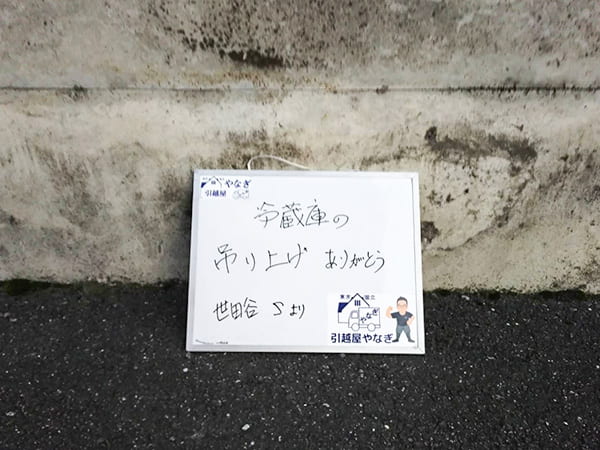 やなぎ
引越屋
冷蔵庫の
吊り上げ ありがとう
世田谷 Sより
東京 国立
やなぎ
引越屋やなぎ